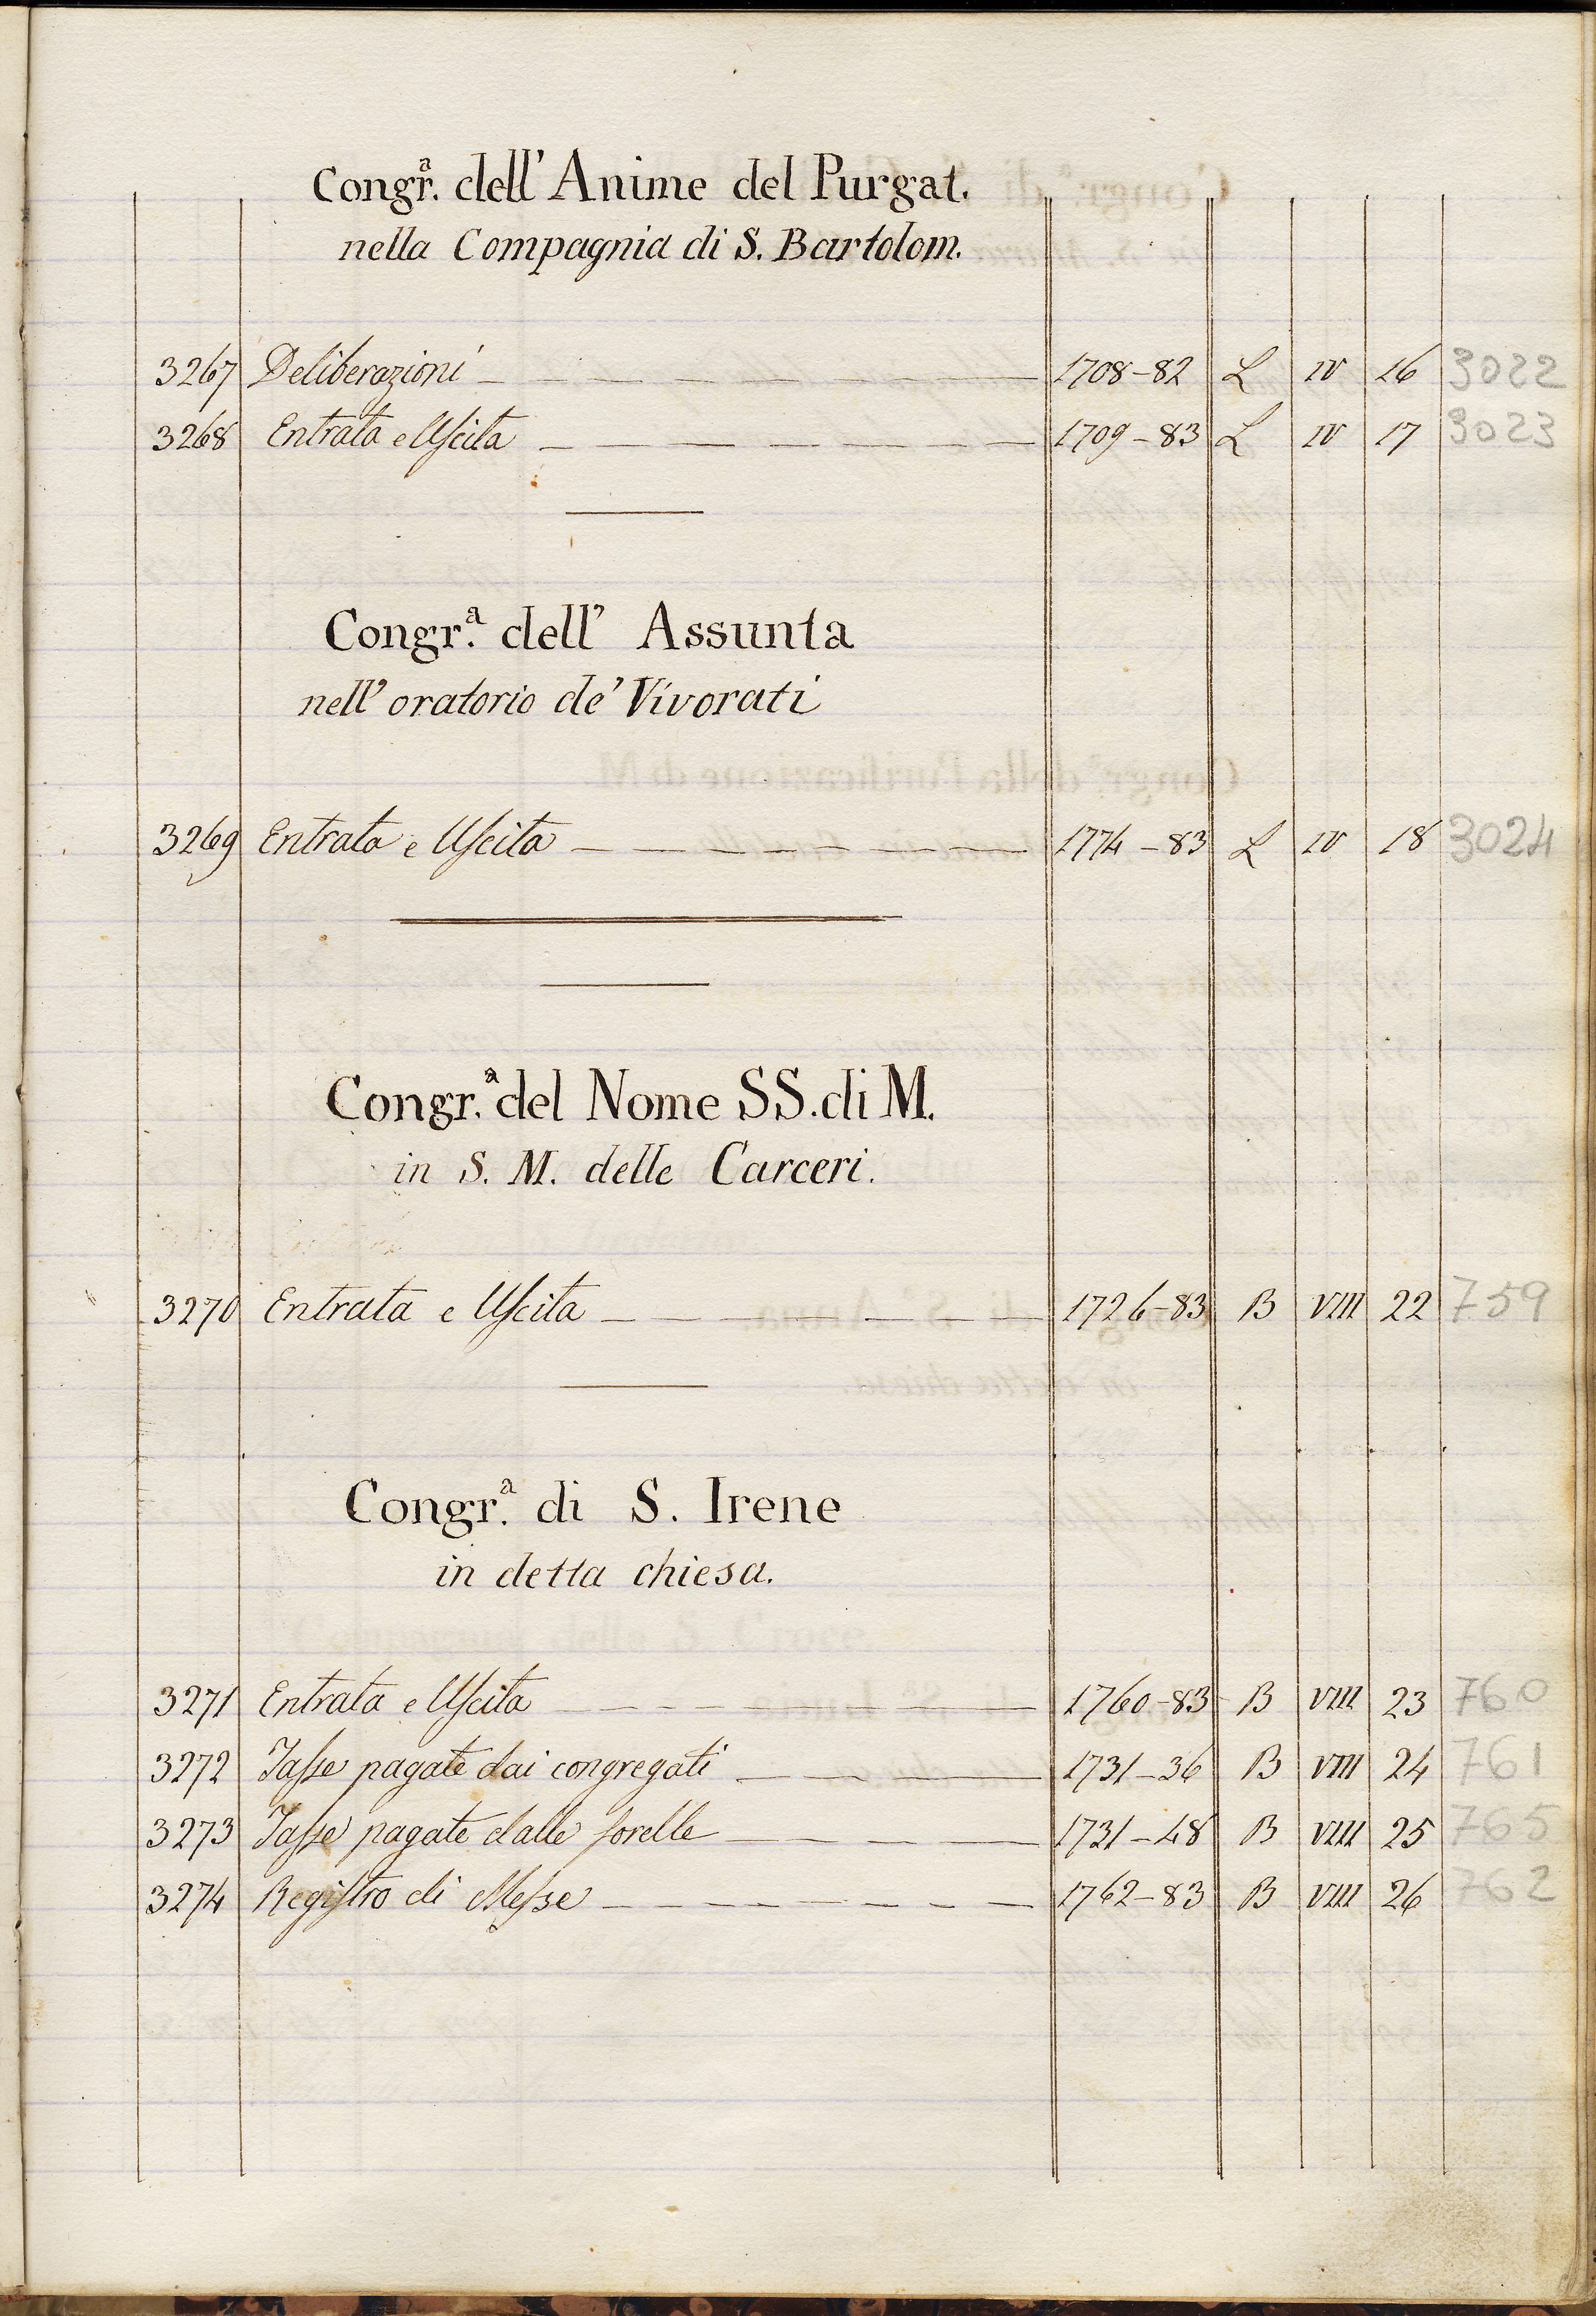 Congr.ª dell' Anime del Purgat.
nella Compagnia di S. Bartolom.
3267 Deliberazioni 1708-82 L IV 16 3022
3268 Entrata e Uscita 1709-83 L IV 17 3023
Congr.ª dell' Assunta
nell' oratorio de' Vivorati
3269 Entrata e Uscita 1774-83 L IV 18 3024
Congr.ª del Nome SS. di M.
in S. M. delle Carceri.
3270 Entrata e Uscita 1726-83 B VIII 22 759
Congr.ª di S. Irene
in detta chiesa.
3271 Entrata e Uscita 1760-83 B VIII 23 760
3272 Tasse pagate dai congregati 1731-36 B VIII 24 761
3273 Tasse pagate dalle sorelle 1731-48 B VIII 25 765
3274 Registro di Messe 1762-83 B VIII 26 762